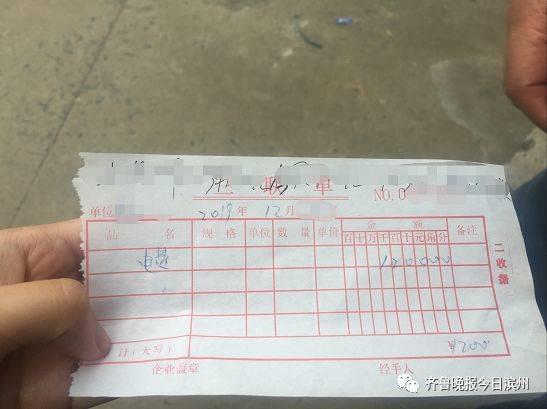 三联单
NO.0
单位 2019年 12月
品名 规格 单位 数量 单价 金额 备注
百十万千百十元角分
二收据
计(大写) ¥200
企业盖章 经手人
齐鲁晚报今日滨州